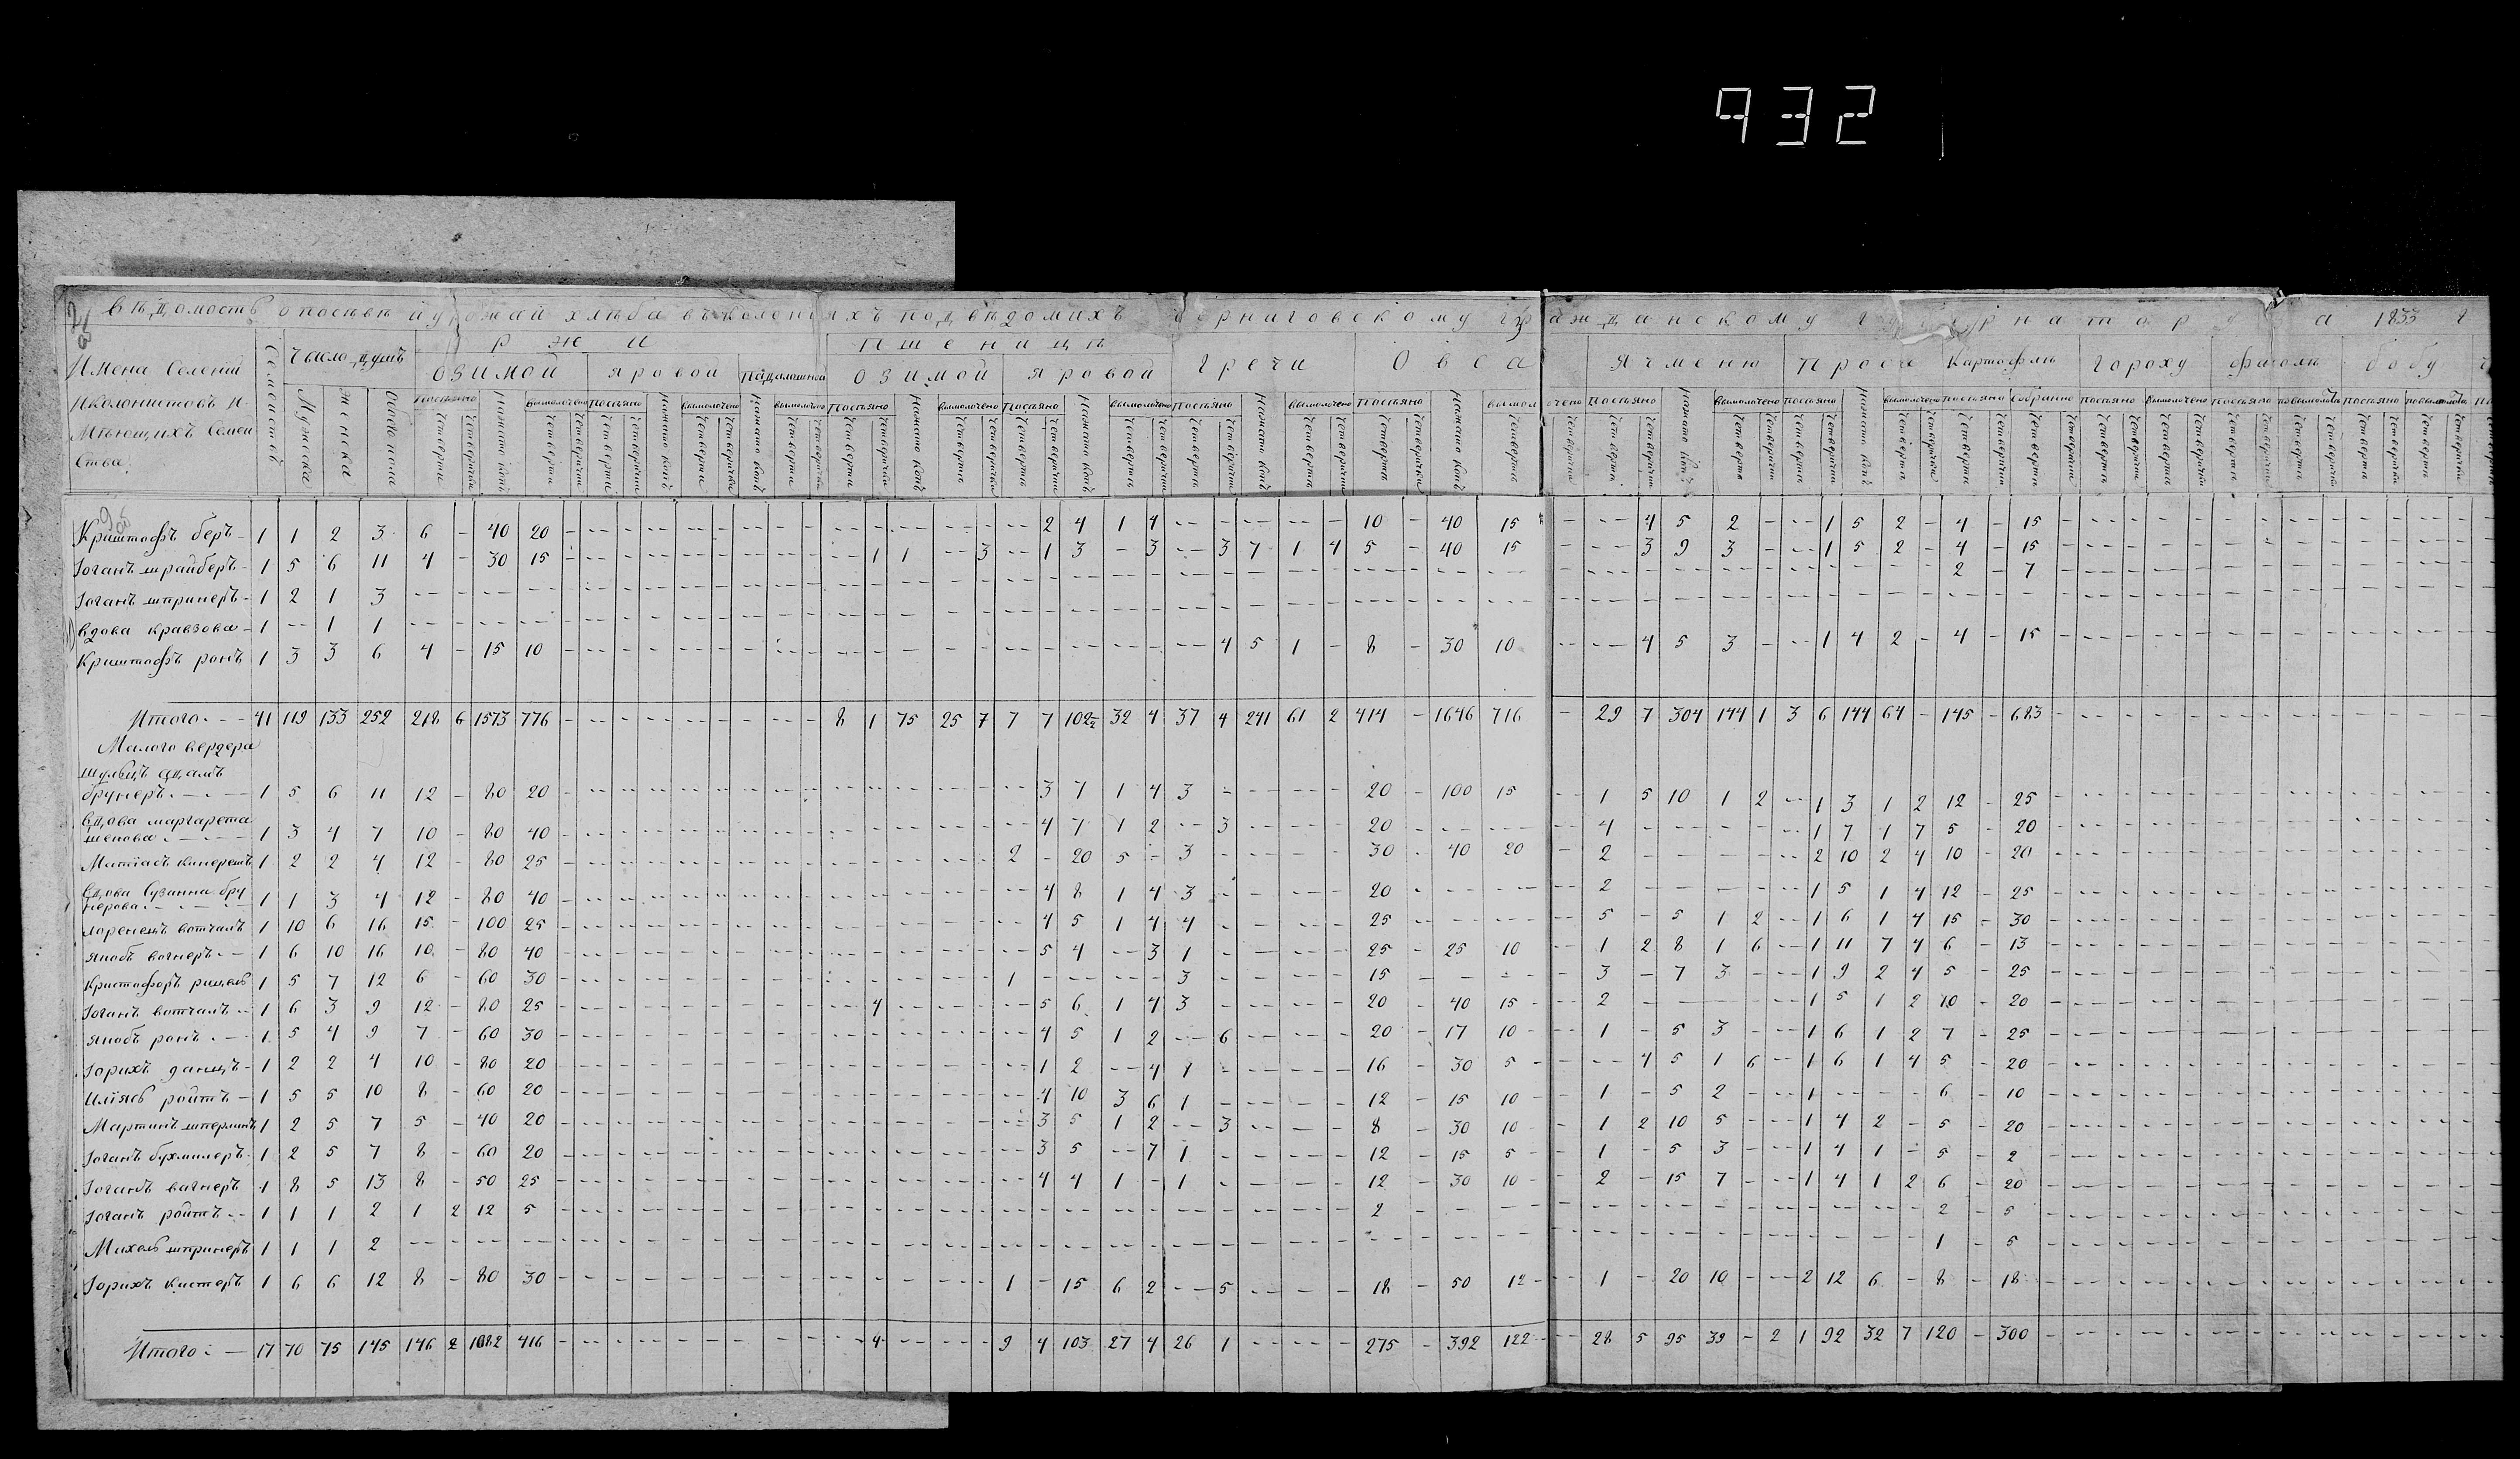 932
Вѣдомость о посѣвѣ и урожаи хлѣба въ колоніяхъ подвѣдомихъ Черниговскому гражданскому губернатору за 1833 г
Имена Селеній и колонистовъ имѣющихъ Семейства
Семействъ
Число душъ
Мужеска
женска
Обоего пола
ржи
озимой
яровой
падалошной
пшеницы
озимой
яровой
гречи
Овса
Ячменю
Проса
Картофль
гороху
фасоль
бобу
посѣяно
Нажато копъ
вымолочено
Четверти
Четверички
Собранно
Криштофъ беръ - 1 1 2 3 6 - 40 20 - 2 4 1 4 - 10 - 40 15 - 4 5 2 - 1 5 2 - 4 - 15
Іоганъ шрайберъ - 1 5 6 11 4 - 30 15 - 1 1 - 3 - 1 3 - 3 - 3 7 1 4 5 - 40 15 - 3 9 3 - 1 5 2 - 4 - 15
Іоганъ штринеръ - 1 2 1 3 - 2 - 7
вдова кравзова - 1 - 1 1 -
Криштофъ ранъ 1 3 3 6 4 - 15 10 - 4 5 1 - 8 - 30 10 - 4 5 3 - 1 4 2 - 4 - 15
Итого - 41 119 133 252 218 6 1573 776 - 8 1 75 25 7 7 7 102½ 32 4 37 4 241 61 2 414 - 1646 716 - 29 7 304 144 1 3 6 144 64 - 145 - 683
Малого вердера
шульцъ адамъ
брунеръ - 1 5 6 11 12 - 80 20 - 3 7 1 4 3 - 20 - 100 15 - 1 5 10 1 2 - 1 3 1 2 12 - 25
вдова маргарета
шенова - 1 3 4 7 10 - 80 40 - 4 7 1 2 - 3 - 20 - 4 - 1 7 1 7 5 - 20
Матіасъ 1 2 2 4 12 - 80 25 - 2 - 20 5 - 3 - 30 - 40 20 - 2 - 2 10 2 4 10 - 20
вдова Сузанна бру
нерова - 1 1 3 4 12 - 80 40 - 4 8 1 4 3 - 20 - 2 - 1 5 1 4 12 - 25
лоренцъ вотчалъ 1 10 6 16 15 - 100 25 - 4 5 1 4 4 - 25 - 5 - 5 1 2 - 1 6 1 4 15 - 30
якобъ вагнеръ - 1 6 10 16 10 - 80 40 - 5 4 - 3 1 - 25 - 25 10 - 1 2 8 1 6 - 1 11 7 4 6 - 13
Кристофоръ рицель 1 5 7 12 6 - 60 30 - 1 - 3 - 15 - 3 - 7 3 - 1 9 2 4 5 - 25
Іоганъ вотчалъ - 1 6 3 9 12 - 80 25 - 4 - 5 6 1 4 3 - 20 - 40 15 - 2 - 1 5 1 2 10 - 20
якобъ ранъ - 1 5 4 9 7 - 60 30 - 4 5 1 2 - 6 - 20 - 17 10 - 1 - 5 3 - 1 6 1 2 7 - 25
Іорихъ данцъ - 1 2 2 4 10 - 80 20 - 1 2 - 4 1 - 16 - 30 5 - 4 5 1 6 - 1 6 1 4 5 - 20
Иліясъройтъ - 1 5 5 10 8 - 60 20 - 4 10 3 6 1 - 12 - 15 10 - 1 - 5 2 - 1 - 6 - 10
Мартинъ 1 2 5 7 5 - 40 20 - 3 5 1 2 - 3 - 8 - 30 10 - 1 2 10 5 - 1 4 2 - 5 - 20
Іоганъ бухмилеръ - 1 2 5 7 8 - 60 20 - 3 5 - 7 1 - 12 - 15 5 - 1 - 5 3 - 1 4 1 - 5 - 2
Іоганъ вагнеръ 1 8 5 13 8 - 50 25 - 4 4 1 - 1 - 12 - 30 10 - 2 - 15 7 - 1 4 1 2 6 - 20
Іоганъ ройтъ - 1 1 1 2 1 2 12 5 - 2 - 2 - 5
Михель штринеръ 1 1 1 2 - 1 - 5
Іорихъ кистеръ 1 6 6 12 8 - 80 30 - 1 - 15 6 2 - 5 - 18 - 50 12 - 1 - 20 10 - 2 12 6 - 8 - 18
Итого: - 17 70 75 145 146 2 1082 416 - 4 - 9 4 103 27 4 26 1 - 275 - 392 122 - 28 5 95 39 - 2 1 92 32 7 120 - 300